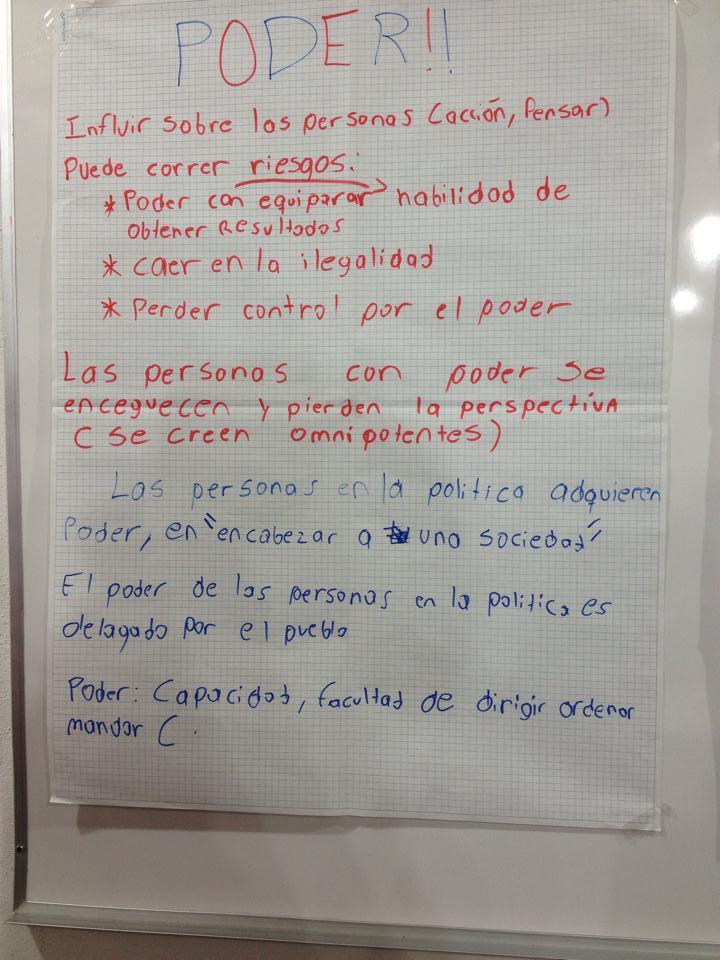 PODER!!
Influir sobre las personas (acción, Pensar)
Puede correr riesgos:
* Poder con equiparar habilidad de
obtener Resultados
* caer en la ilegalidad
* Perder control por el poder
Las personas con poder se
enceguecen y pierden la perspectiva
( se creen omnipotentes)
Las personas en la politica adquieren
Poder, en "encabezar a una sociedad"
El poder de las personas en la politica es
delagado por el pueblo
Poder: Capacidad, facultad de dirigir ordenar
mandar (.